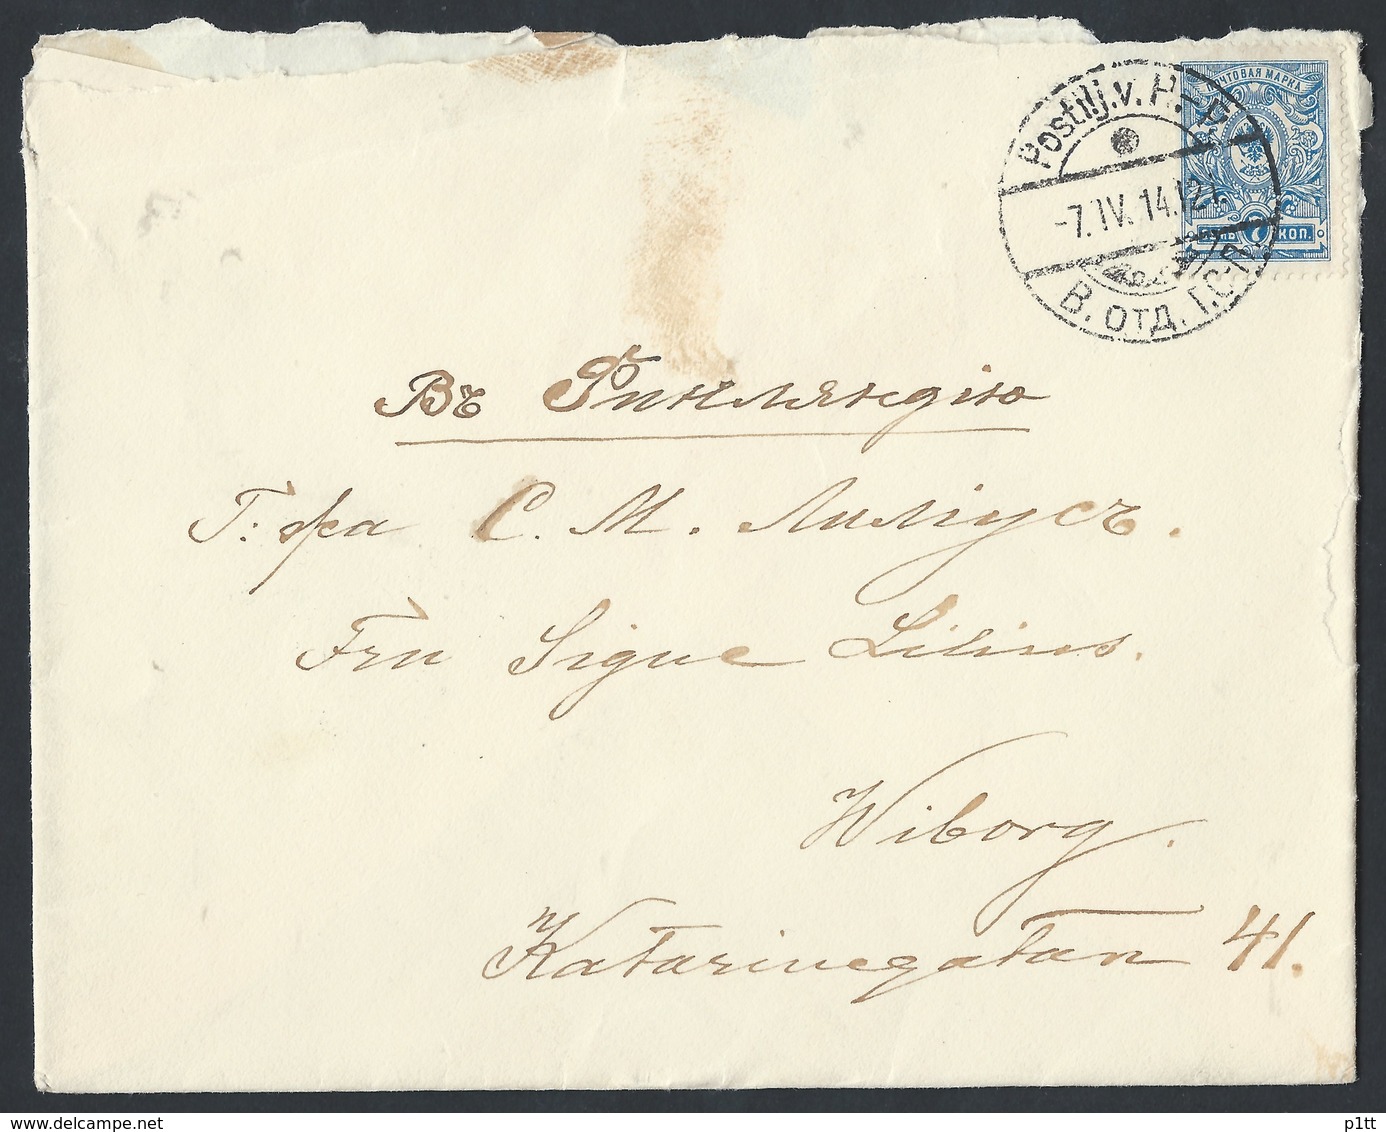 Postilj.v.
-7.IV.14.12
В. ОТД. Г.С-П
ПОЧТОВАЯ МАРКА
7 КОП.
Въ Финляндію
Г: жа С. М. Лиліусъ.
Fru Signe Lilius.
Wiborg.
Katarinegatan 41.
p1tt